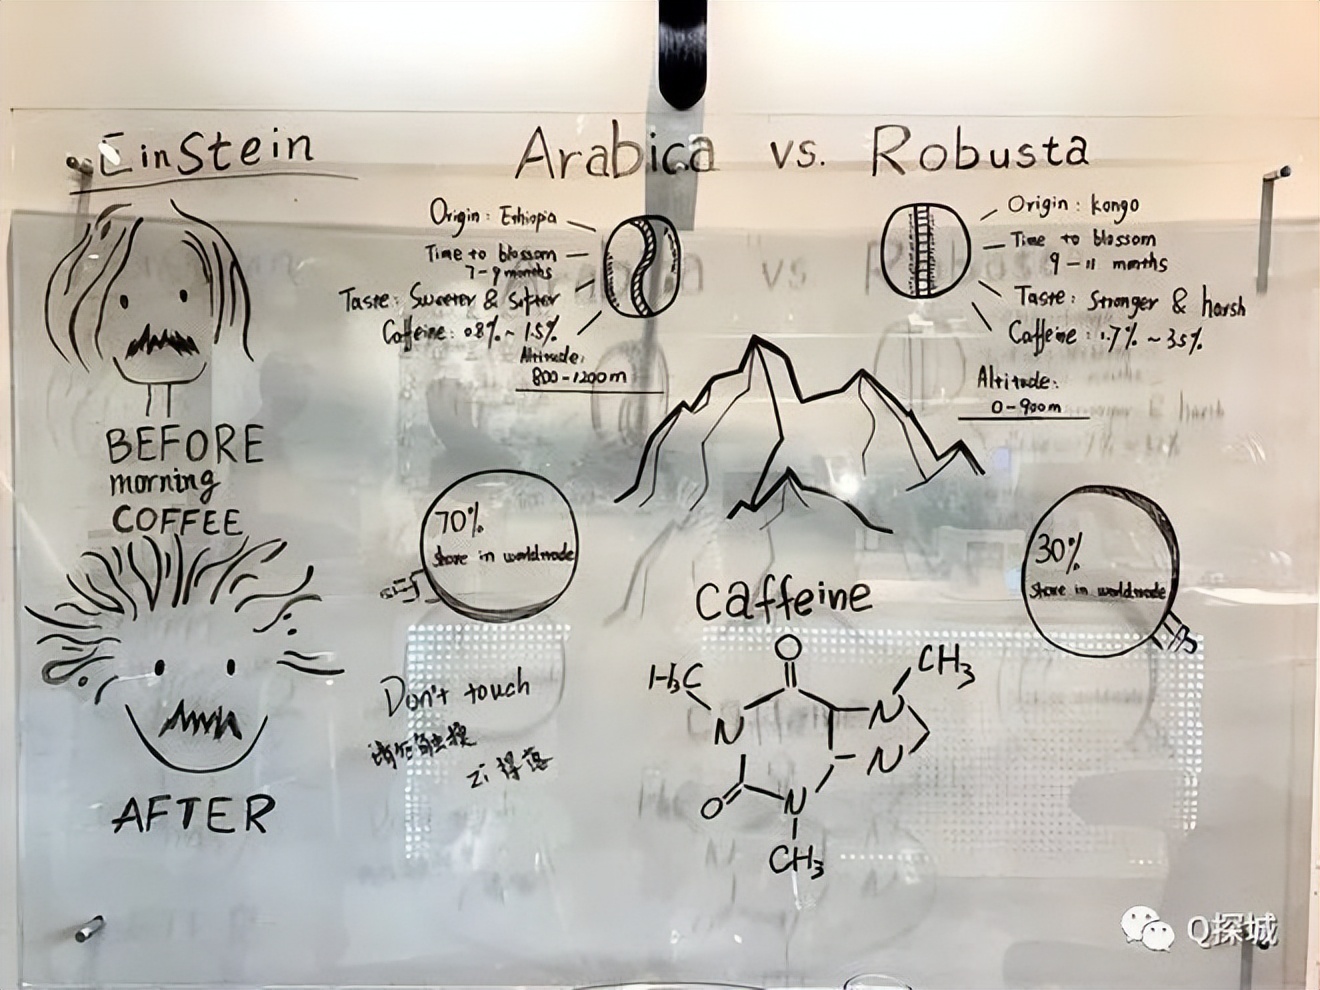 EinStein
BEFORE
morning
COFFEE
AFTER
Arabica vs. Robusta
Origin: Ethiopia
Time to blossom
7-9 months
Taste: Sweeter & Softer
Caffeine: 0.8% ~ 1.5%
Altitude:
800-1200m
Origin: kongo
Time to blossom
9-11 months
Taste: Stronger & harsh
Caffeine: 1.7% ~ 3.5%
Altitude:
0-900m
70%
Share in worldtrade
30%
Share in worldtrade
Don't touch
请勿触摸
caffeine
O
H₃C
CH₃
N
N
N
O
N
CH₃
Q探城